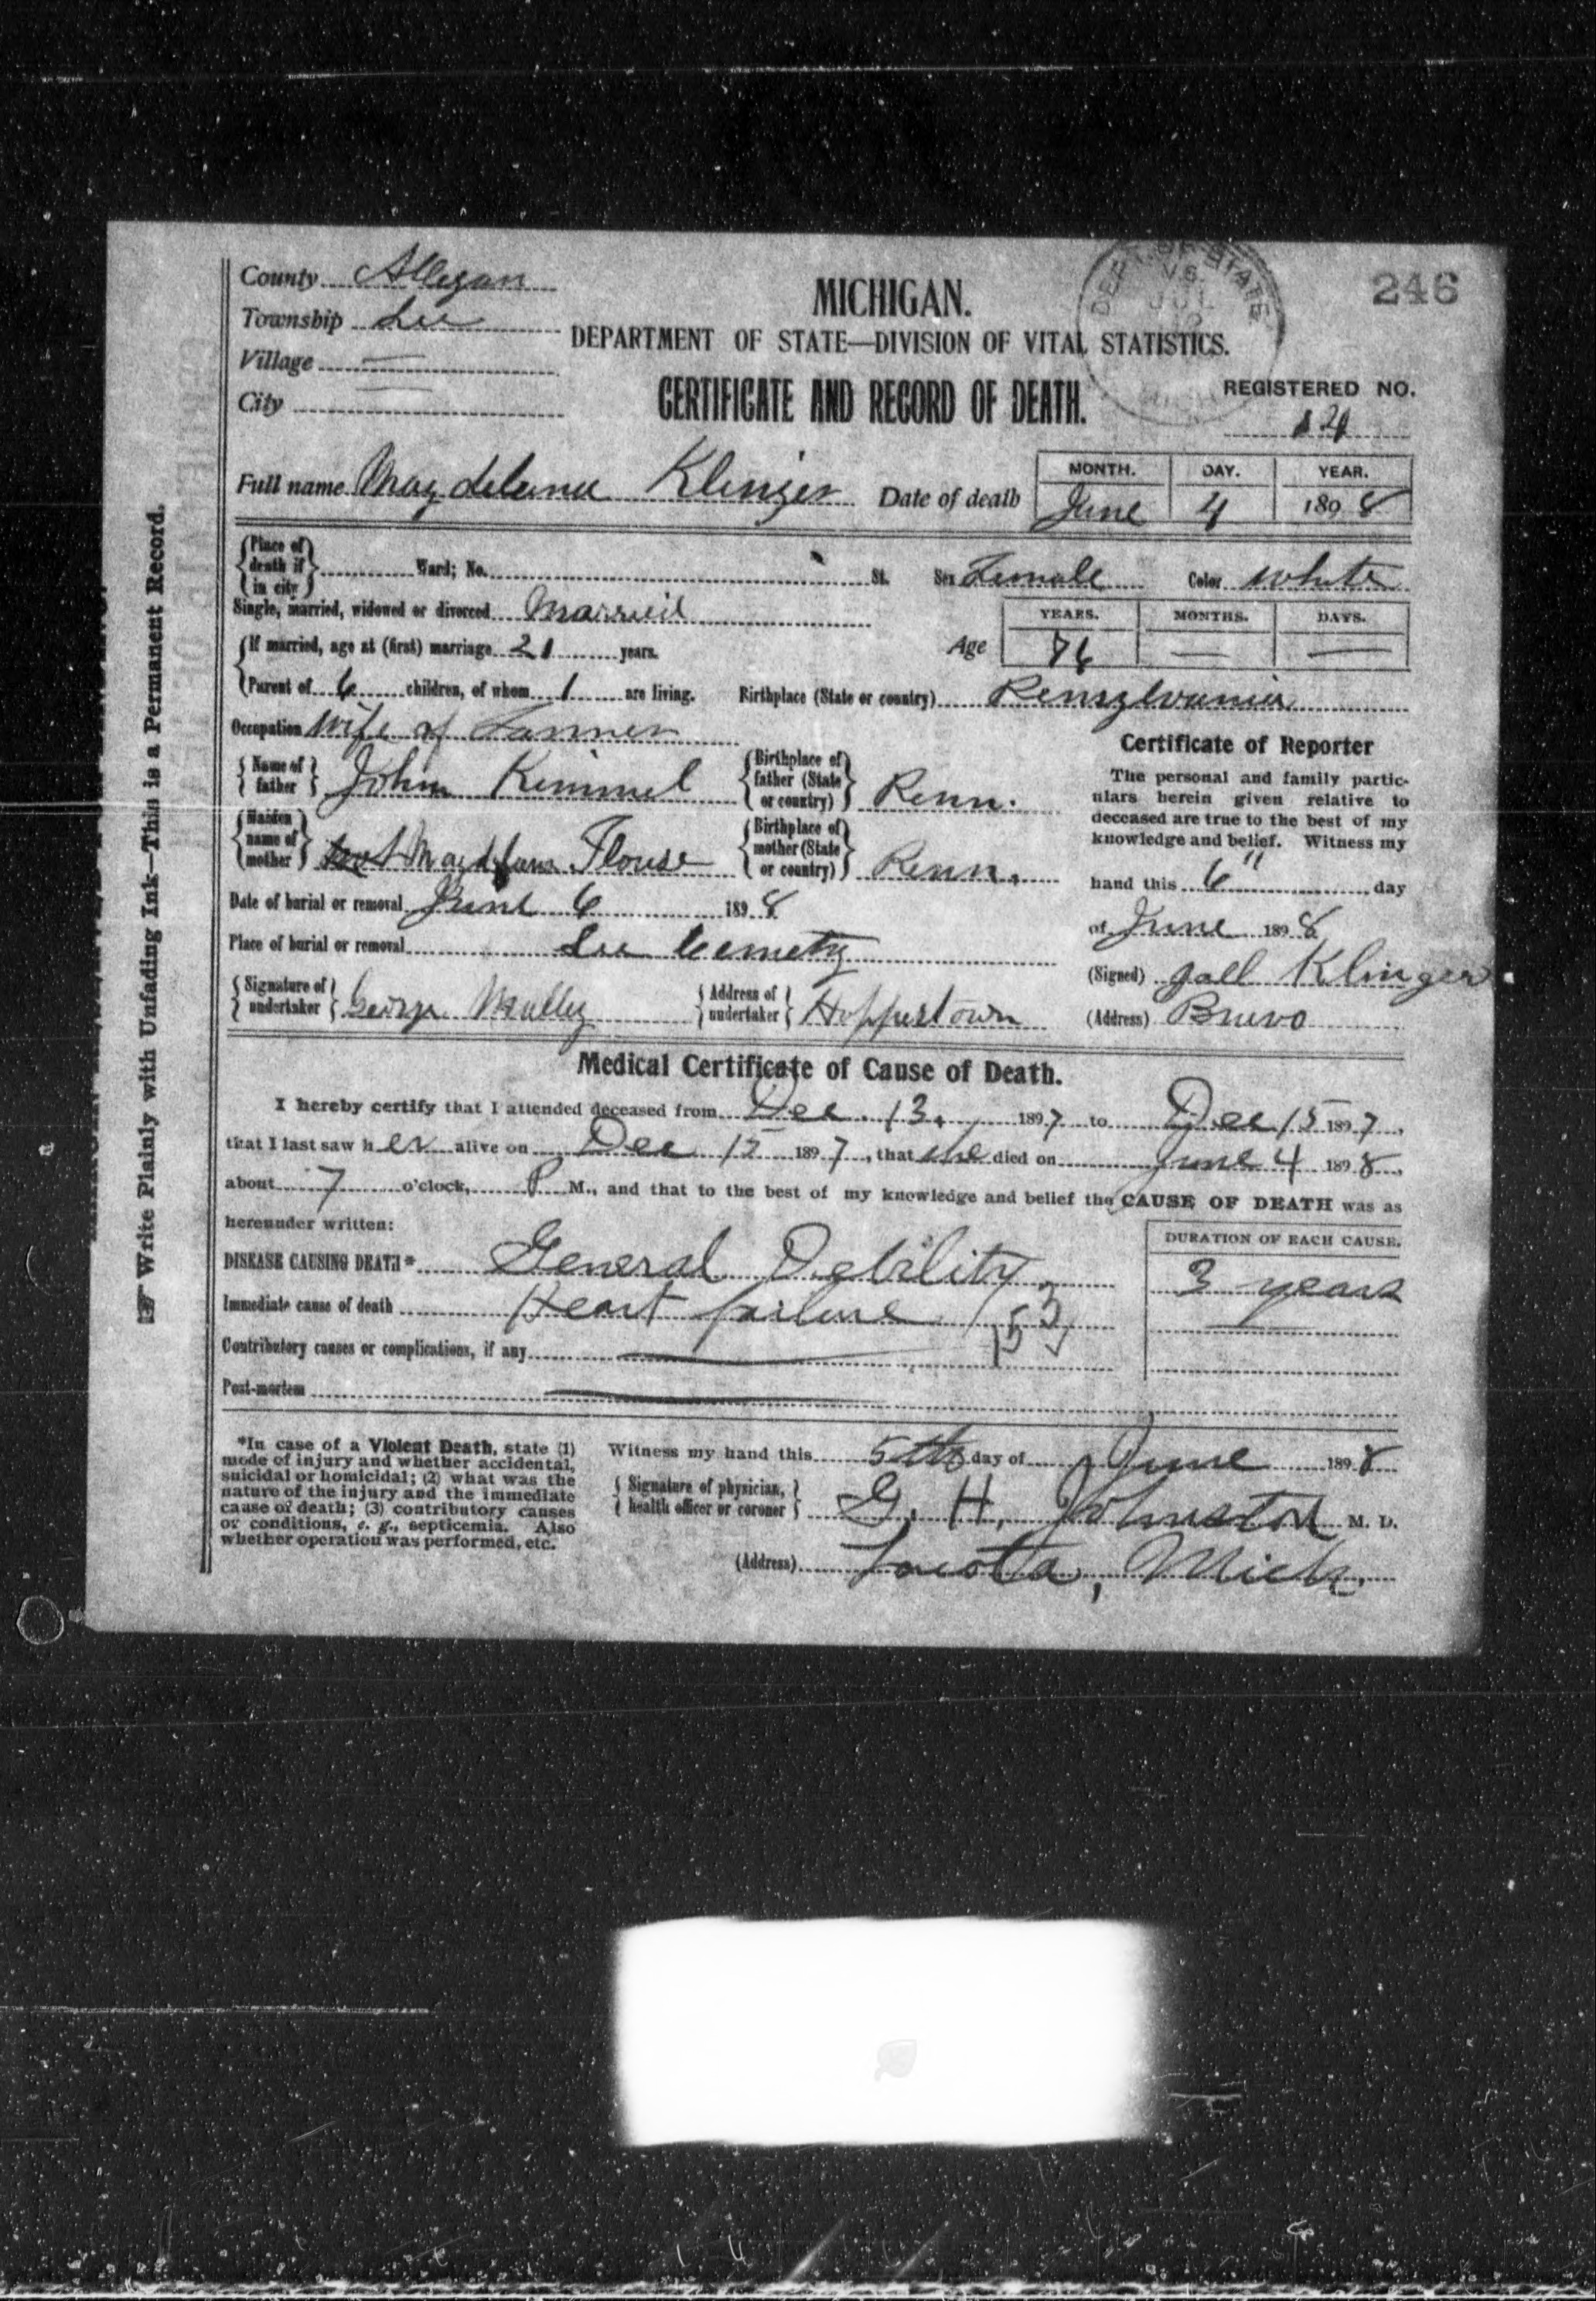 246
County Allegan
Township Lee
Village —
City
MICHIGAN.
DEPARTMENT OF STATE—DIVISION OF VITAL STATISTICS.
CERTIFICATE AND RECORD OF DEATH.
DEPT. OF STATE
V.S.
JUL
REGISTERED NO.
Full name Magdelena Klinger Date of death MONTH. DAY. YEAR.
June 4 1898
Place of death if in city Ward; No. St. Sex Female Color White
Single, married, widowed or divorced Married
If married, age at (first) marriage 21 years. Age YEARS. MONTHS. DAYS.
76 — —
Parent of 6 children, of whom 1 are living. Birthplace (State or country) Pensylvania
Occupation Wife of Farmer
Name of father John Kimmel Birthplace of father (State or country) Penn.
Maiden name of mother Flouse Birthplace of mother (State or country) Penn.
Date of burial or removal June 6 1898
Place of burial or removal Lee Cemetry
Signature of undertaker George Address of undertaker Hoppertown
Certificate of Reporter
The personal and family partic-
ulars herein given relative to
deceased are true to the best of my
knowledge and belief. Witness my
hand this 6" day
of June 1898
(Signed) Klinger
(Address) Bravo
Medical Certificate of Cause of Death.
I hereby certify that I attended deceased from Dec. 13, 1897 to Dec 15 1897,
that I last saw her alive on Dec 15 1897, that she died on June 4 1898,
about 7 o'clock, P M., and that to the best of my knowledge and belief the CAUSE OF DEATH was as
hereunder written:
DURATION OF EACH CAUSE.
DISEASE CAUSING DEATH* General Debility 3 years
Immediate cause of death Heart failure —
153
Contributory causes or complications, if any —
Post-mortem —
*In case of a Violent Death, state (1)
mode of injury and whether accidental,
suicidal or homicidal; (2) what was the
nature of the injury and the immediate
cause of death; (3) contributory causes
or conditions, e. g., septicemia. Also
whether operation was performed, etc.
Witness my hand this 5th day of June 1898
Signature of physician, health officer or coroner G. H. Johnston M. D.
(Address) Lacota, Mich.
☞ Write Plainly with Unfading Ink—This is a Permanent Record.